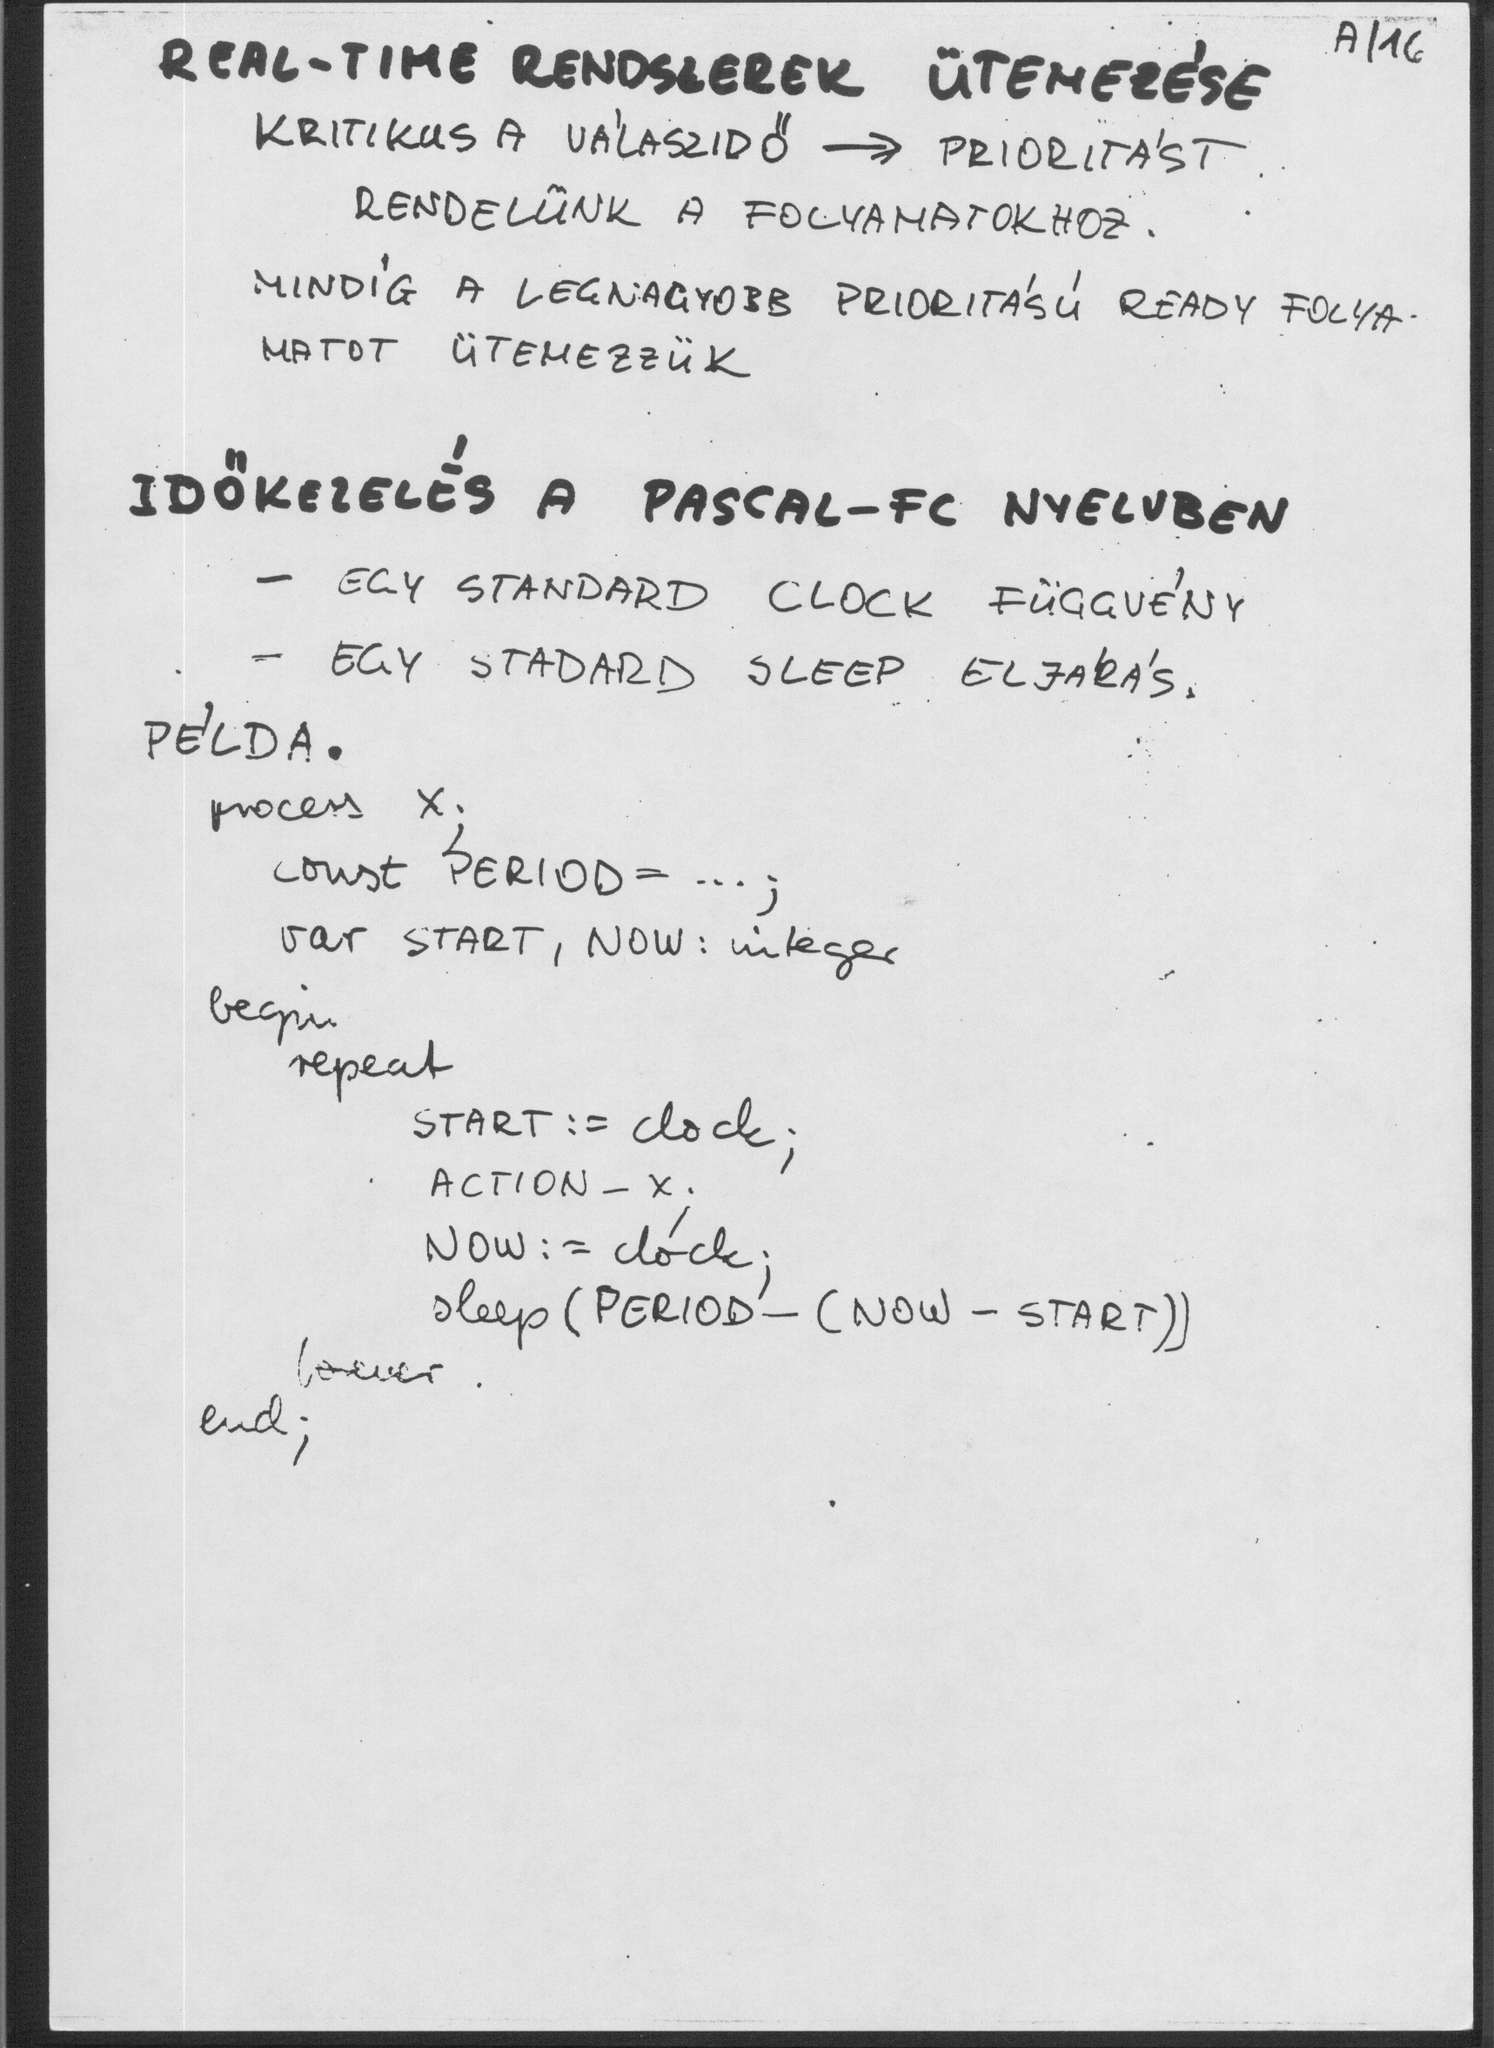 A/16
REAL-TIME RENDSZEREK ÜTEMEZÉSE
KRITIKUS A VÁLASZIDŐ → PRIORITÁST
RENDELÜNK A FOLYAMATOKHOZ.
MINDÍG A LEGNAGYOBB PRIORITÁSÚ READY FOLYA-
MATOT ÜTEMEZZÜK
IDŐKEZELÉS A PASCAL-FC NYELVBEN
- EGY STANDARD CLOCK FÜGGVÉNY
- EGY STADARD SLEEP ELJÁRÁS.
PÉLDA.
process X;
const PERIOD = ...;
var START, NOW: integer
begin
repeat
START := clock;
ACTION-X;
NOW := clock;
sleep (PERIOD - (NOW - START))
forever.
end;